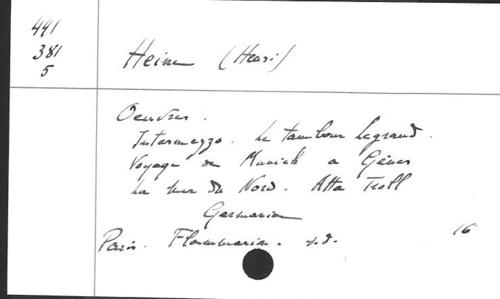 441
381
5
Heine (Henri)
Oeuvres.
Intermezzo. Le tambour Legrand.
Voyage de Munich a Gênes
La mer du Nord. Atta Troll
Germania
Paris. Flammarion. s.d. 16